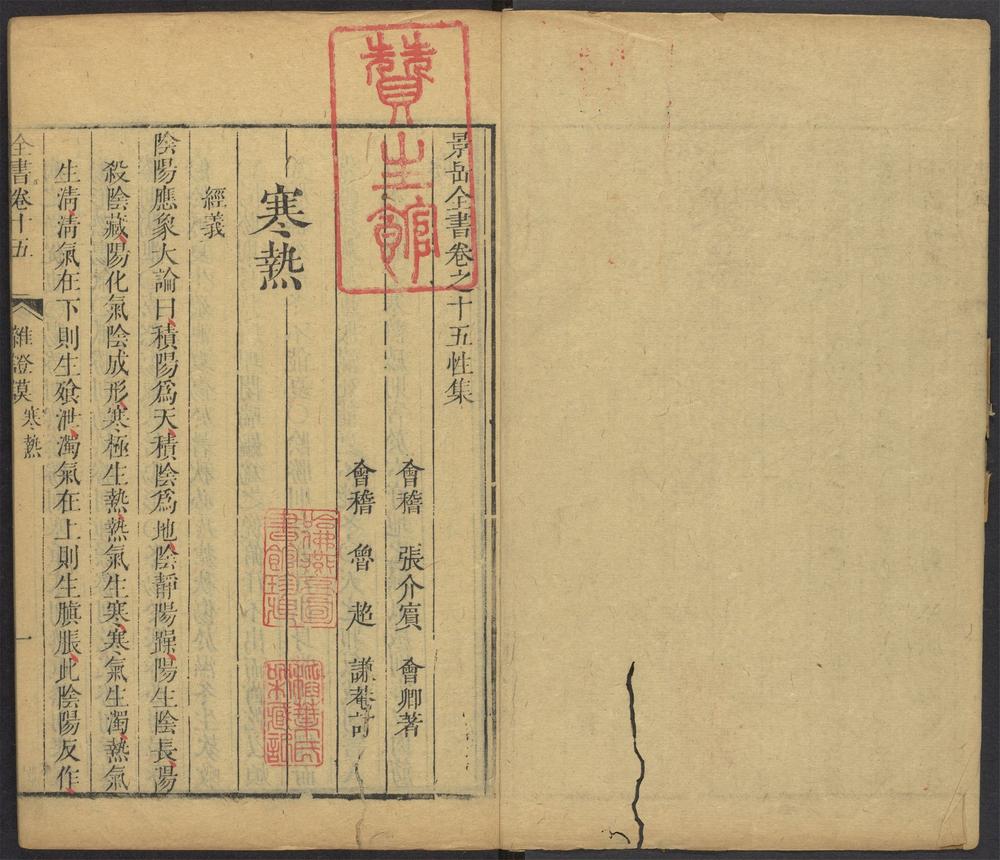 景岳全書卷之十五性集
會稽 張介賓 會卿著
會稽 魯超 謙菴訂
寒熱
經義
陰陽應象大論曰積陽爲天積陰爲地陰靜陽躁陽生陰長陽
殺陰藏陽化氣陰成形寒極生熱熱極生寒寒氣生濁熱氣
生淸淸氣在下則生飧泄濁氣在上則生䐜脹此陰陽反作
全書卷十五 雜證謨 寒熱 一
贊生館
哈佛燕京圖
書館珍藏